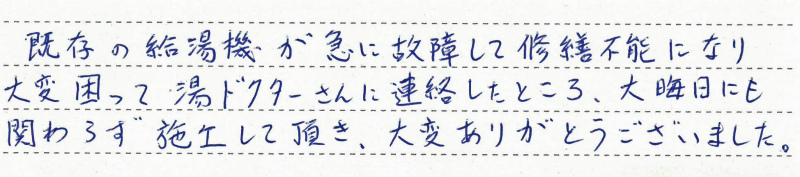 既存の給湯機が急に故障して修繕不能になり
大変困って湯ドクターさんに連絡したところ、大晦日にも
関わらず施工して頂き、大変ありがとうございました。